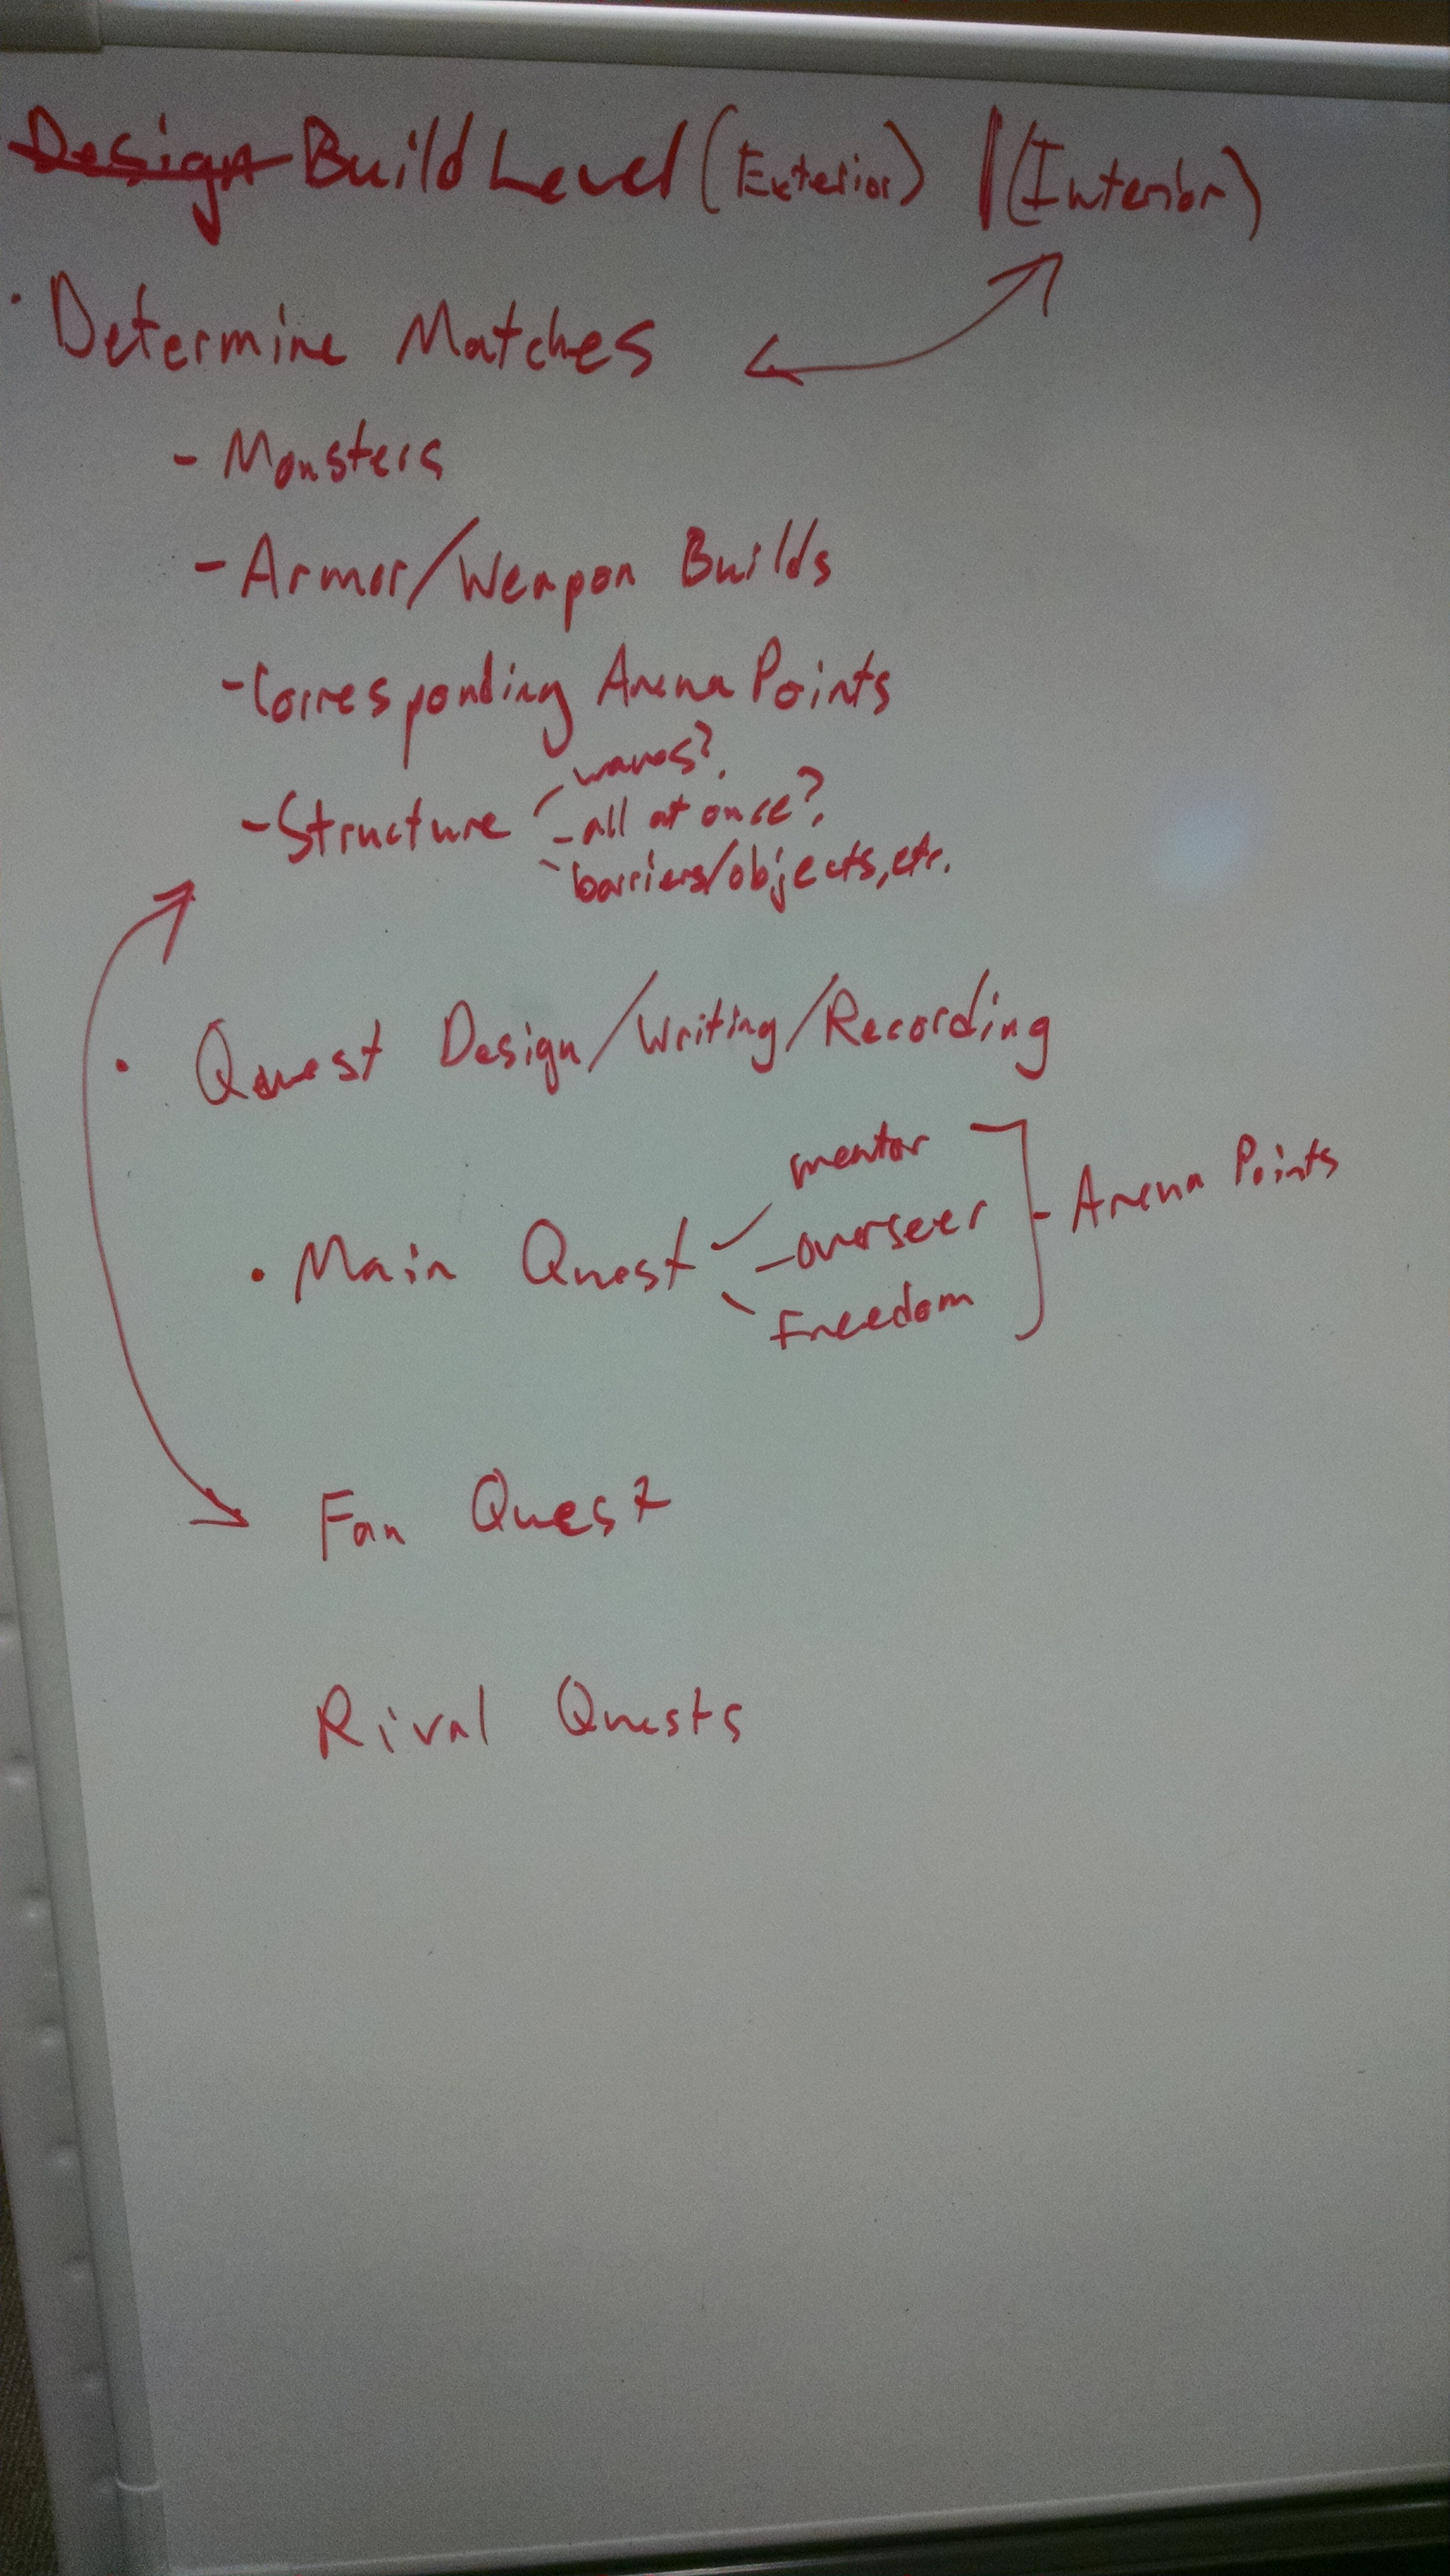 Design Build Level (Exterior) | (Interior)
· Determine Matches
- Monsters
- Armor/Weapon Builds
- Corresponding Arena Points
- Structure
waves?
- all at once?
barriers/objects, etc.
· Quest Design/Writing/Recording
mentor
· Main Quest - overseer - Arena Points
Freedom
Fan Quest
Rival Quests